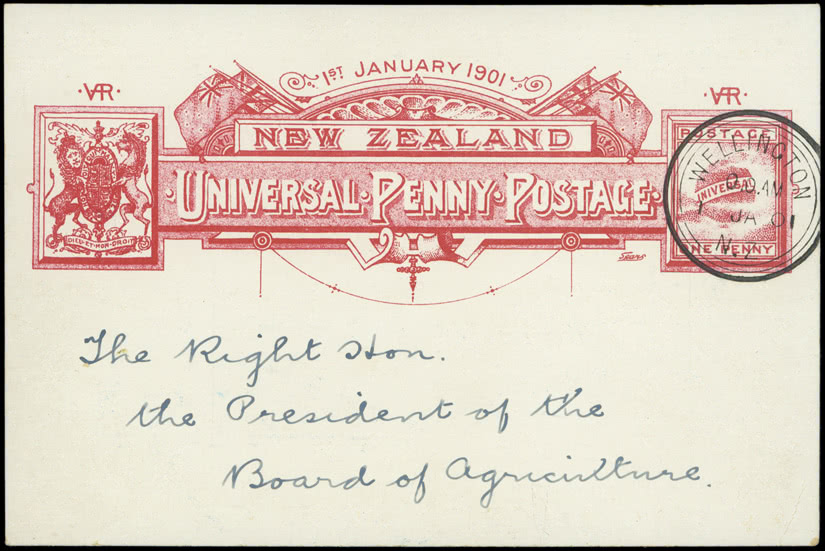 1ST JANUARY 1901
VR
VR
NEW ZEALAND
UNIVERSAL · PENNY · POSTAGE ·
DIEU·ET·MON·DROIT
POSTAGE
UNIVERSAL
ONE PENNY
WELLINGTON
JA 01
N.Z
The Right Hon.
the President of the
Board of Agriculture.